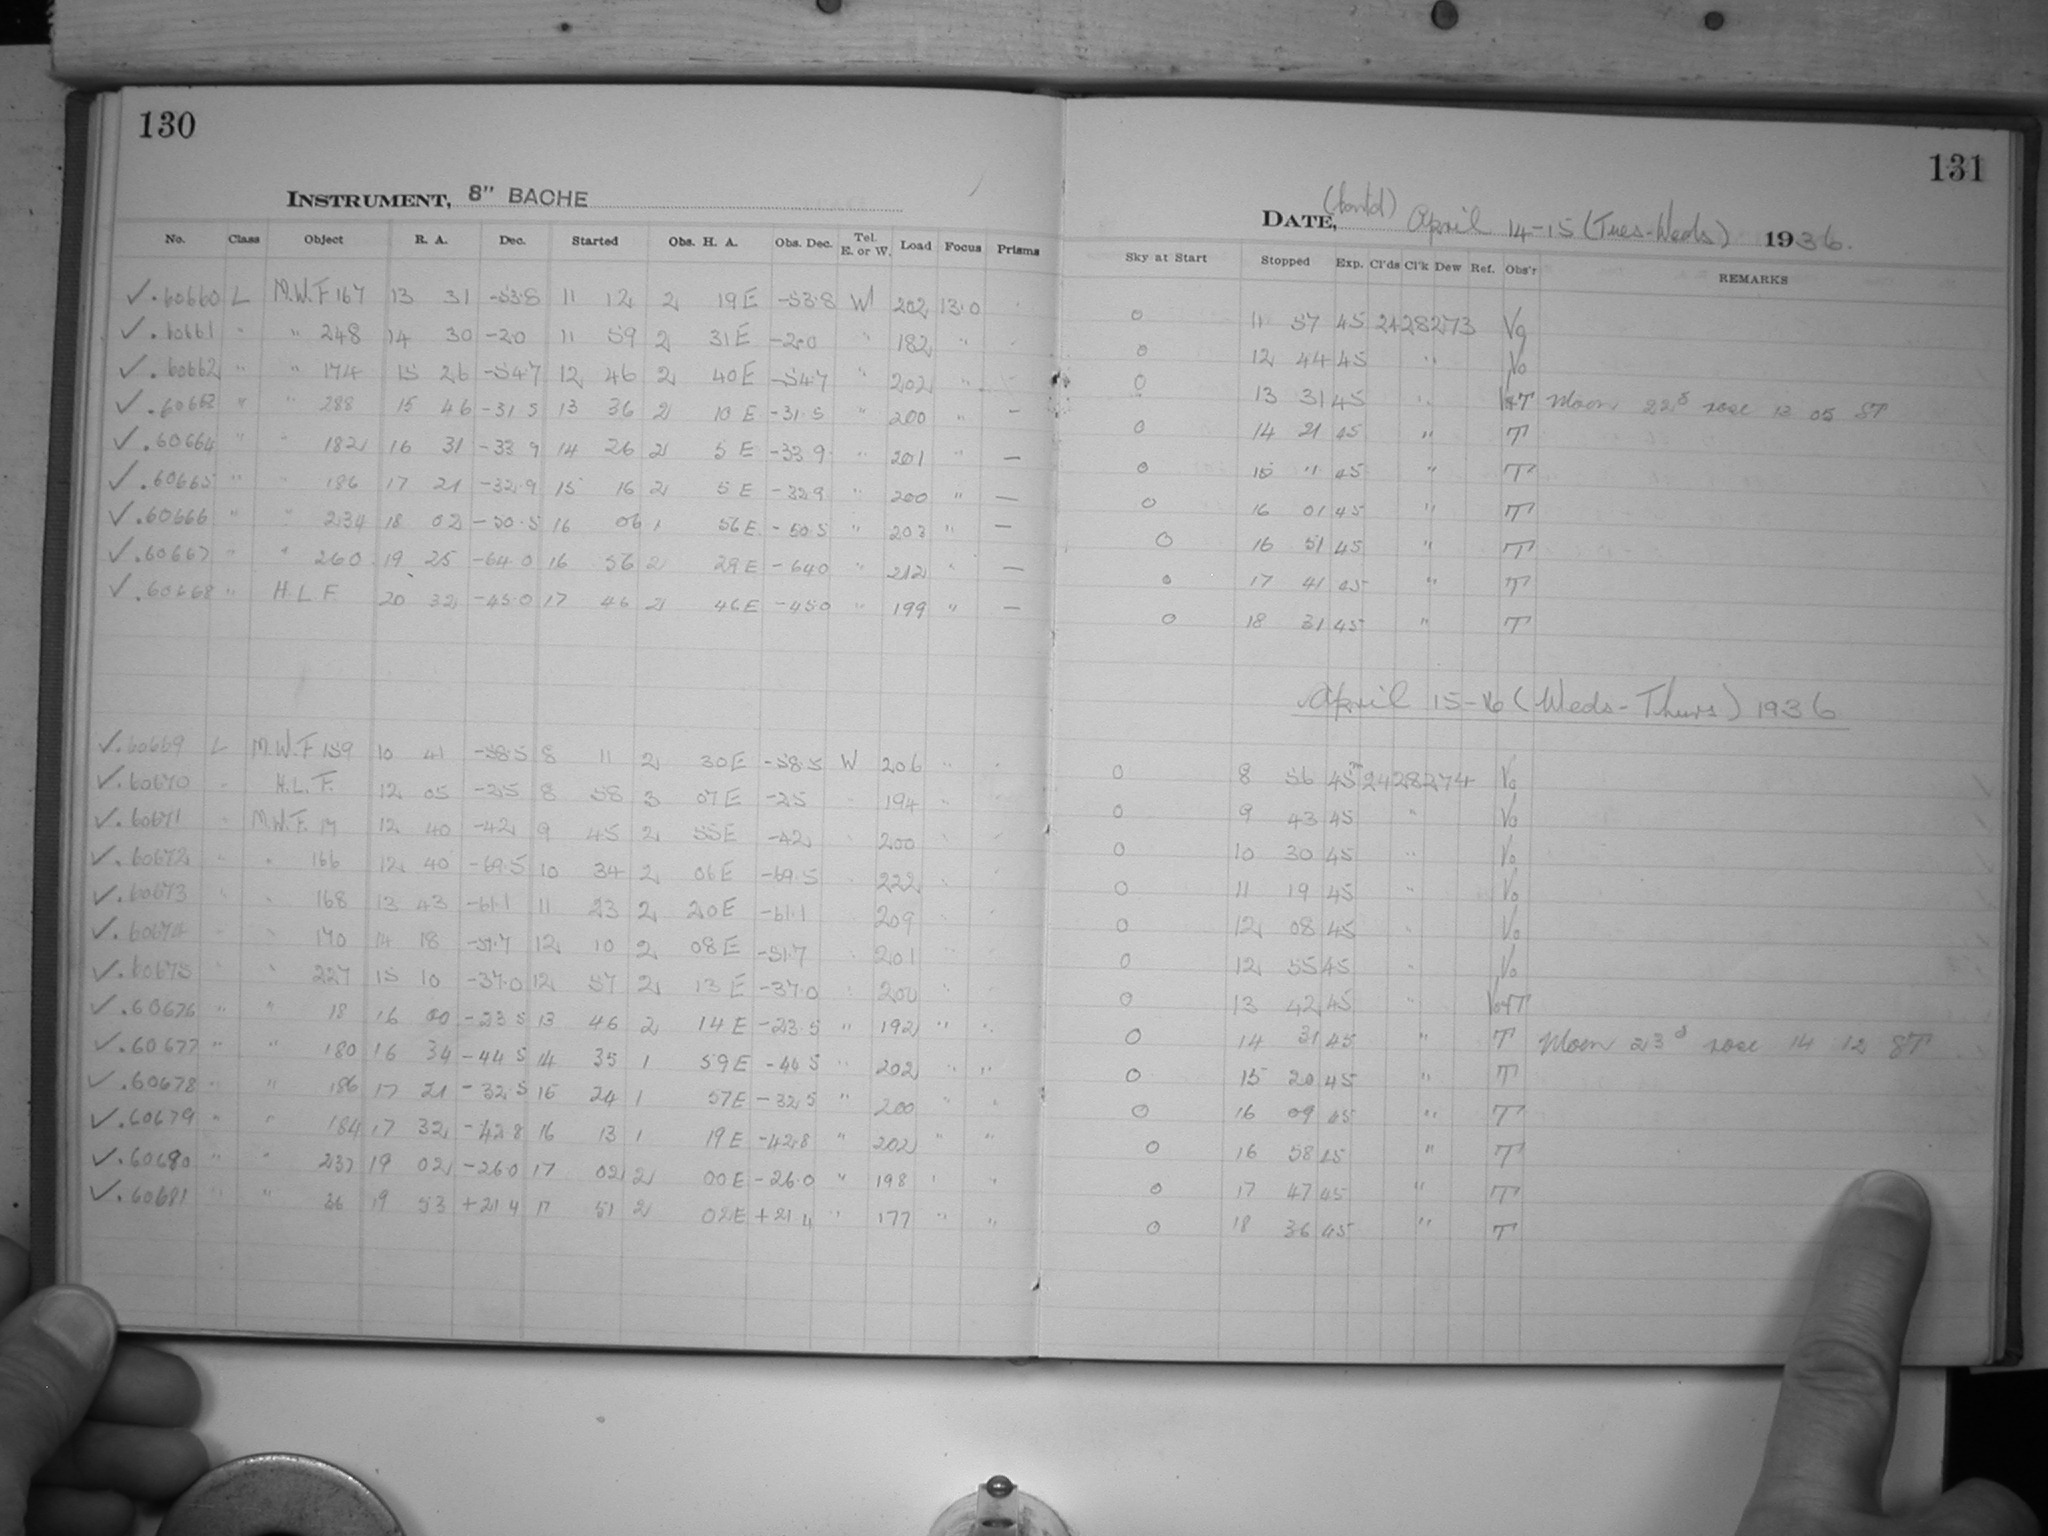 130
INSTRUMENT, 8" BACHE
No. Class Object R. A. Dec. Started Obs. H. A. Obs. Dec. Tel. E. or W. Load Focus Prisms
✓.60660 L M.W.F 167 13 31 -53.8 11 12 2 19 E -53.8 W 202 13.0
✓.60661 " " 248 14 30 -20 11 59 2 31 E -20 " 182 "
✓.60662 " " 174 15 26 -54.7 12 46 2 40 E -54.7 " 202 "
✓.60663 " " 288 15 46 -31.5 13 36 2 10 E -31.5 " 200 " —
✓.60664 " " 182 16 31 -33 9 14 26 2 5 E -33 9 " 201 " —
✓.60665 " " 186 17 21 -32.9 15 16 2 5 E -32.9 " 200 " —
✓.60666 " " 234 18 02 -50.5 16 06 1 56 E -50.5 " 203 " —
✓.60667 " " 260 19 25 -64 0 16 56 2 29 E -64 0 " 212 " —
✓.60668 " H.L.F. 20 32 -45.0 17 46 2 46 E -45.0 " 199 " —
✓.60669 L M.W.F 159 10 41 -58.5 8 11 2 30 E -58.5 W 206 "
✓.60670 " H.L.F. 12 05 -25 8 58 3 07 E -25 " 194 "
✓.60671 " M.W.F. 17 12 40 -42 9 45 2 55 E -42 " 200 "
✓.60672 " " 166 12 40 -69.5 10 34 2 06 E -69.5 " 222 "
✓.60673 " " 168 13 43 -61.1 11 23 2 20 E -61.1 " 209 "
✓.60674 " " 170 14 18 -51.7 12 10 2 08 E -51.7 " 201 "
✓.60675 " " 227 15 10 -37.0 12 57 2 13 E -37.0 " 200 "
✓.60676 " " 18 16 00 -23 5 13 46 2 14 E -23.5 " 192 " "
✓.60677 " " 180 16 34 -44 5 14 35 1 59 E " 202 " "
✓.60678 " " 186 17 21 -32 5 15 24 1 57 E -32 5 " 200 " "
✓.60679 " " 184 17 32 -42 8 16 13 1 19 E -42.8 " 202 " "
✓.60680 " " 237 19 02 -26 0 17 02 2 00 E -26.0 " 198 " "
✓.60681 " " 36 19 53 +21 4 17 51 2 02 E +21 4 " 177 " "
131
DATE, (Contd) April 14-15 (Tues-Weds) 1936.
Sky at Start Stopped Exp. Cl'ds Cl'k Dew Ref. Obs'r REMARKS
0 11 57 45 2428273 Vo
0 12 44 45 " Vo
0 13 31 45 " Vo+T Moon 22d rose 13 05 ST
0 14 21 45 " T
0 15 11 45 " T
0 16 01 45 " T
0 16 51 45 " T
0 17 41 45 " T
0 18 31 45 " T
April 15-16 (Weds-Thurs) 1936
0 8 56 45m 2428274 Vo
0 9 43 45 " Vo
0 10 30 45 " Vo
0 11 19 45 " Vo
0 12 08 45 " Vo
0 12 55 45 " Vo
0 13 42 45 " Vo+T
0 14 31 45 " T Moon 23d rose 14 12 ST
0 15 20 45 " T
0 16 09 45 " T
0 16 58 45 " T
0 17 47 45 " T
0 18 36 45 " T